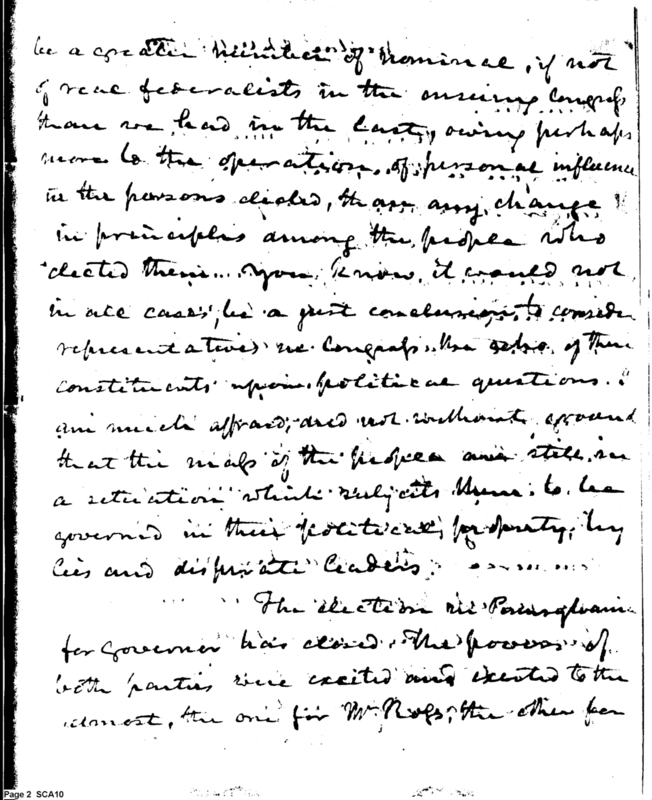 be a greater number of nominal, if not
of real federalists in the ensuing Congress
than we had in the last, owing perhaps
more to the operation of personal influence
in the persons elected, than any change
in principles among the people who
elected them... You know it would not
in all cases, be a just conclusion to consider
representatives in Congress the echo of their
constituents upon political questions. I
am much affraid, and not without ground
that the mass of the people are still in
a situation which subjects them to be
governed in their political, by
lies and leaders.
The election in Pennsylvania
for governor has closed. The powers of
both parties were excited and exerted to the
utmost, the one for Mr. Ross, the other for
Page 2 SCA10